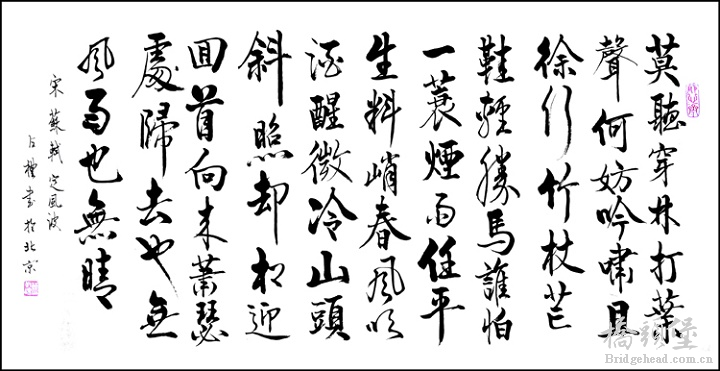 莫聽穿林打葉
聲何妨吟嘯且
徐行竹杖芒
鞋輕勝馬誰怕
一蓑煙雨任平
生料峭春風吹
酒醒微冷山頭
斜照却相迎
囬首向来蕭瑟
處歸去也無
風雨也無晴
宋蘇軾定風波
書於北京
橋頭堡
Bridgehead.com.cn